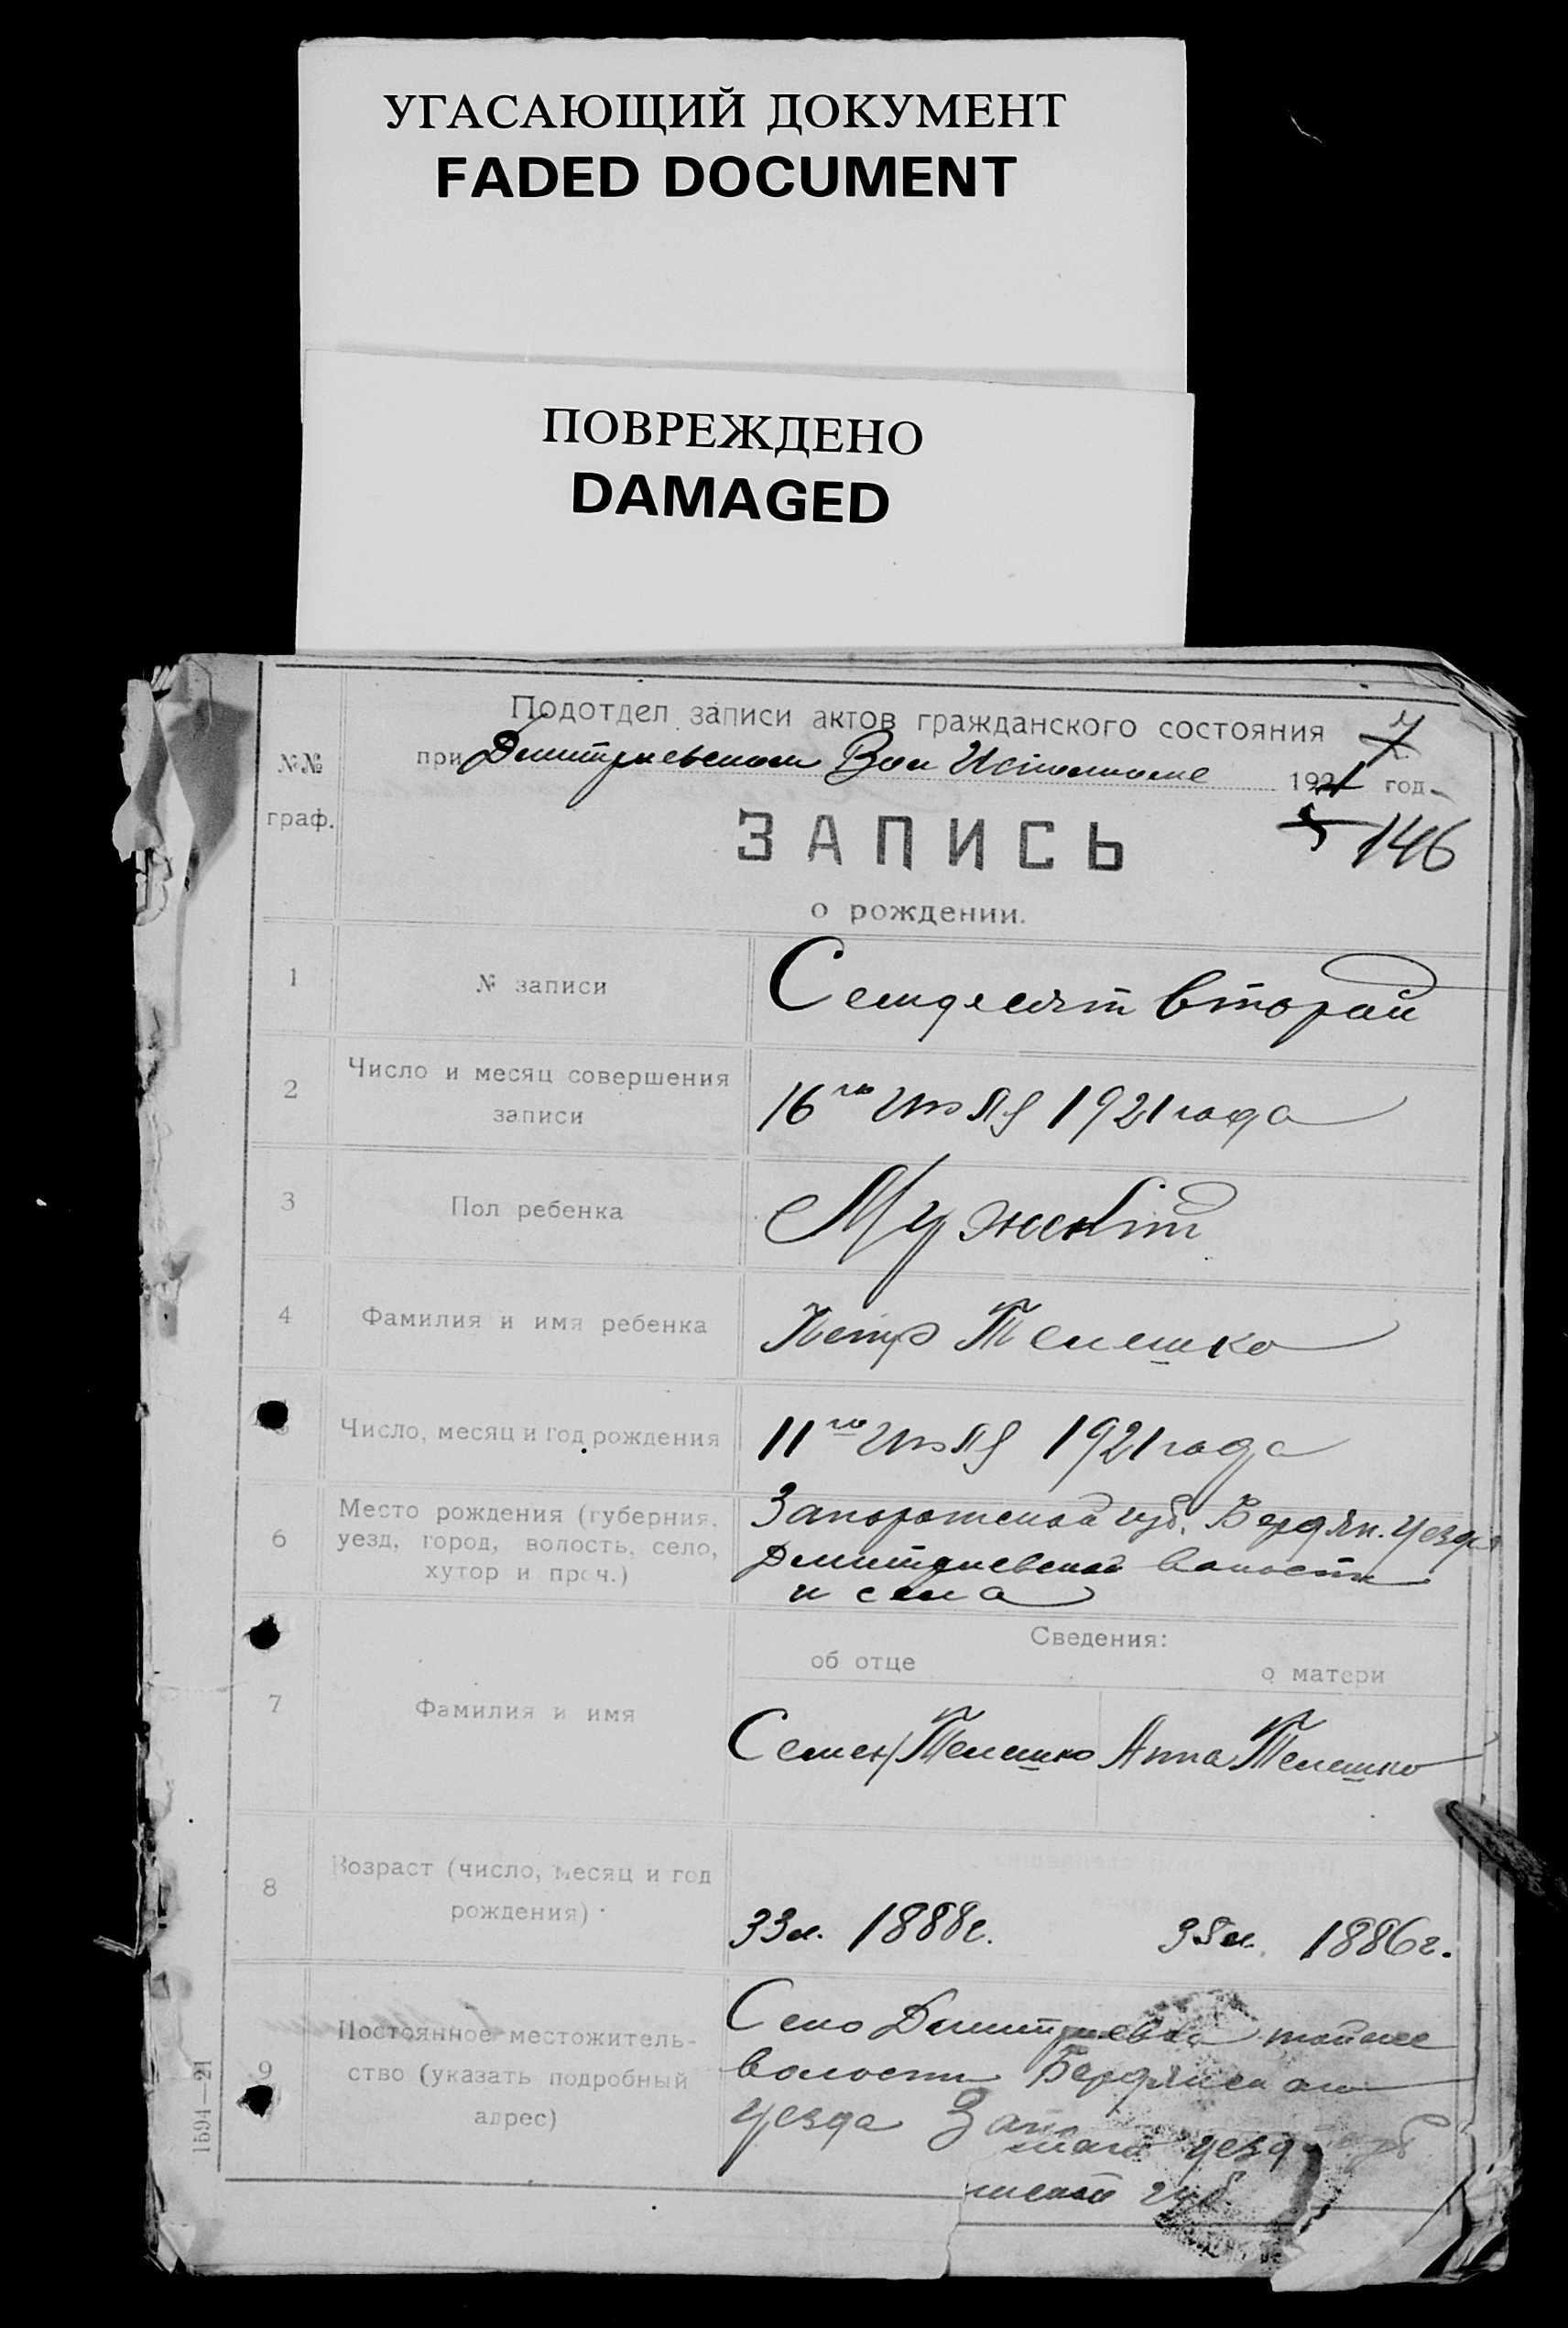 УГАСАЮЩИЙ ДОКУМЕНТ
FADED DOCUMENT
ПОВРЕЖДЕНО
DAMAGED
Подотдел записи актов гражданского состояния
7
при Дмитриевском Вол Исполкоме 1921 год
№№
граф.
ЗАПИСЬ
5 146
о рождении.
1 № записи Семдесят вторай
2 Число и месяц совершения
записи
16го Июля 1921 года
3 Пол ребенка Мужской
4 Фамилия и имя ребенка Петр Телешко
Число, месяц и год рождения 11го Июля 1921 года
6 Место рождения (губерния,
уезд, город, волость, село,
хутор и проч.)
Запорожской губ. Бердян. Уезда
Дмитриевской волости
и села
Сведения:
об отце о матери
7 Фамилия и имя Семен Телешко Анна Телешко
8 Возраст (число, месяц и год
рождения)
33л. 1888г. 35л. 1886г.
9 Постоянное местожитель-
ство (указать подробный
адрес)
Село Дмитриевка тойже
волости Бердянскаго
уезда Запо
уезд
губ.
1594—21